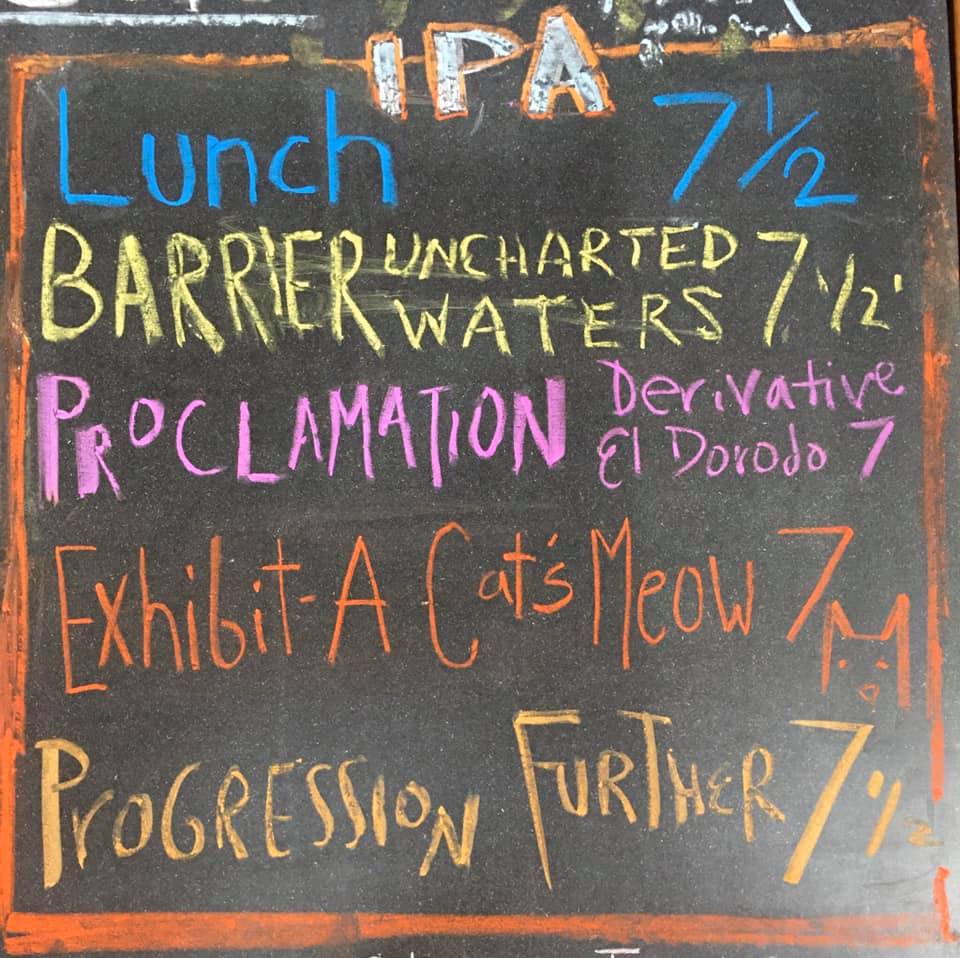 IPA
Lunch 7 1/2
BARRIER UNCHARTED WATERS 7 1/2
PROCLAMATION Derivative El Dorodo 7
Exhibit-A Cat's Meow 7
PROGRESSION FURTHER 7 1/2